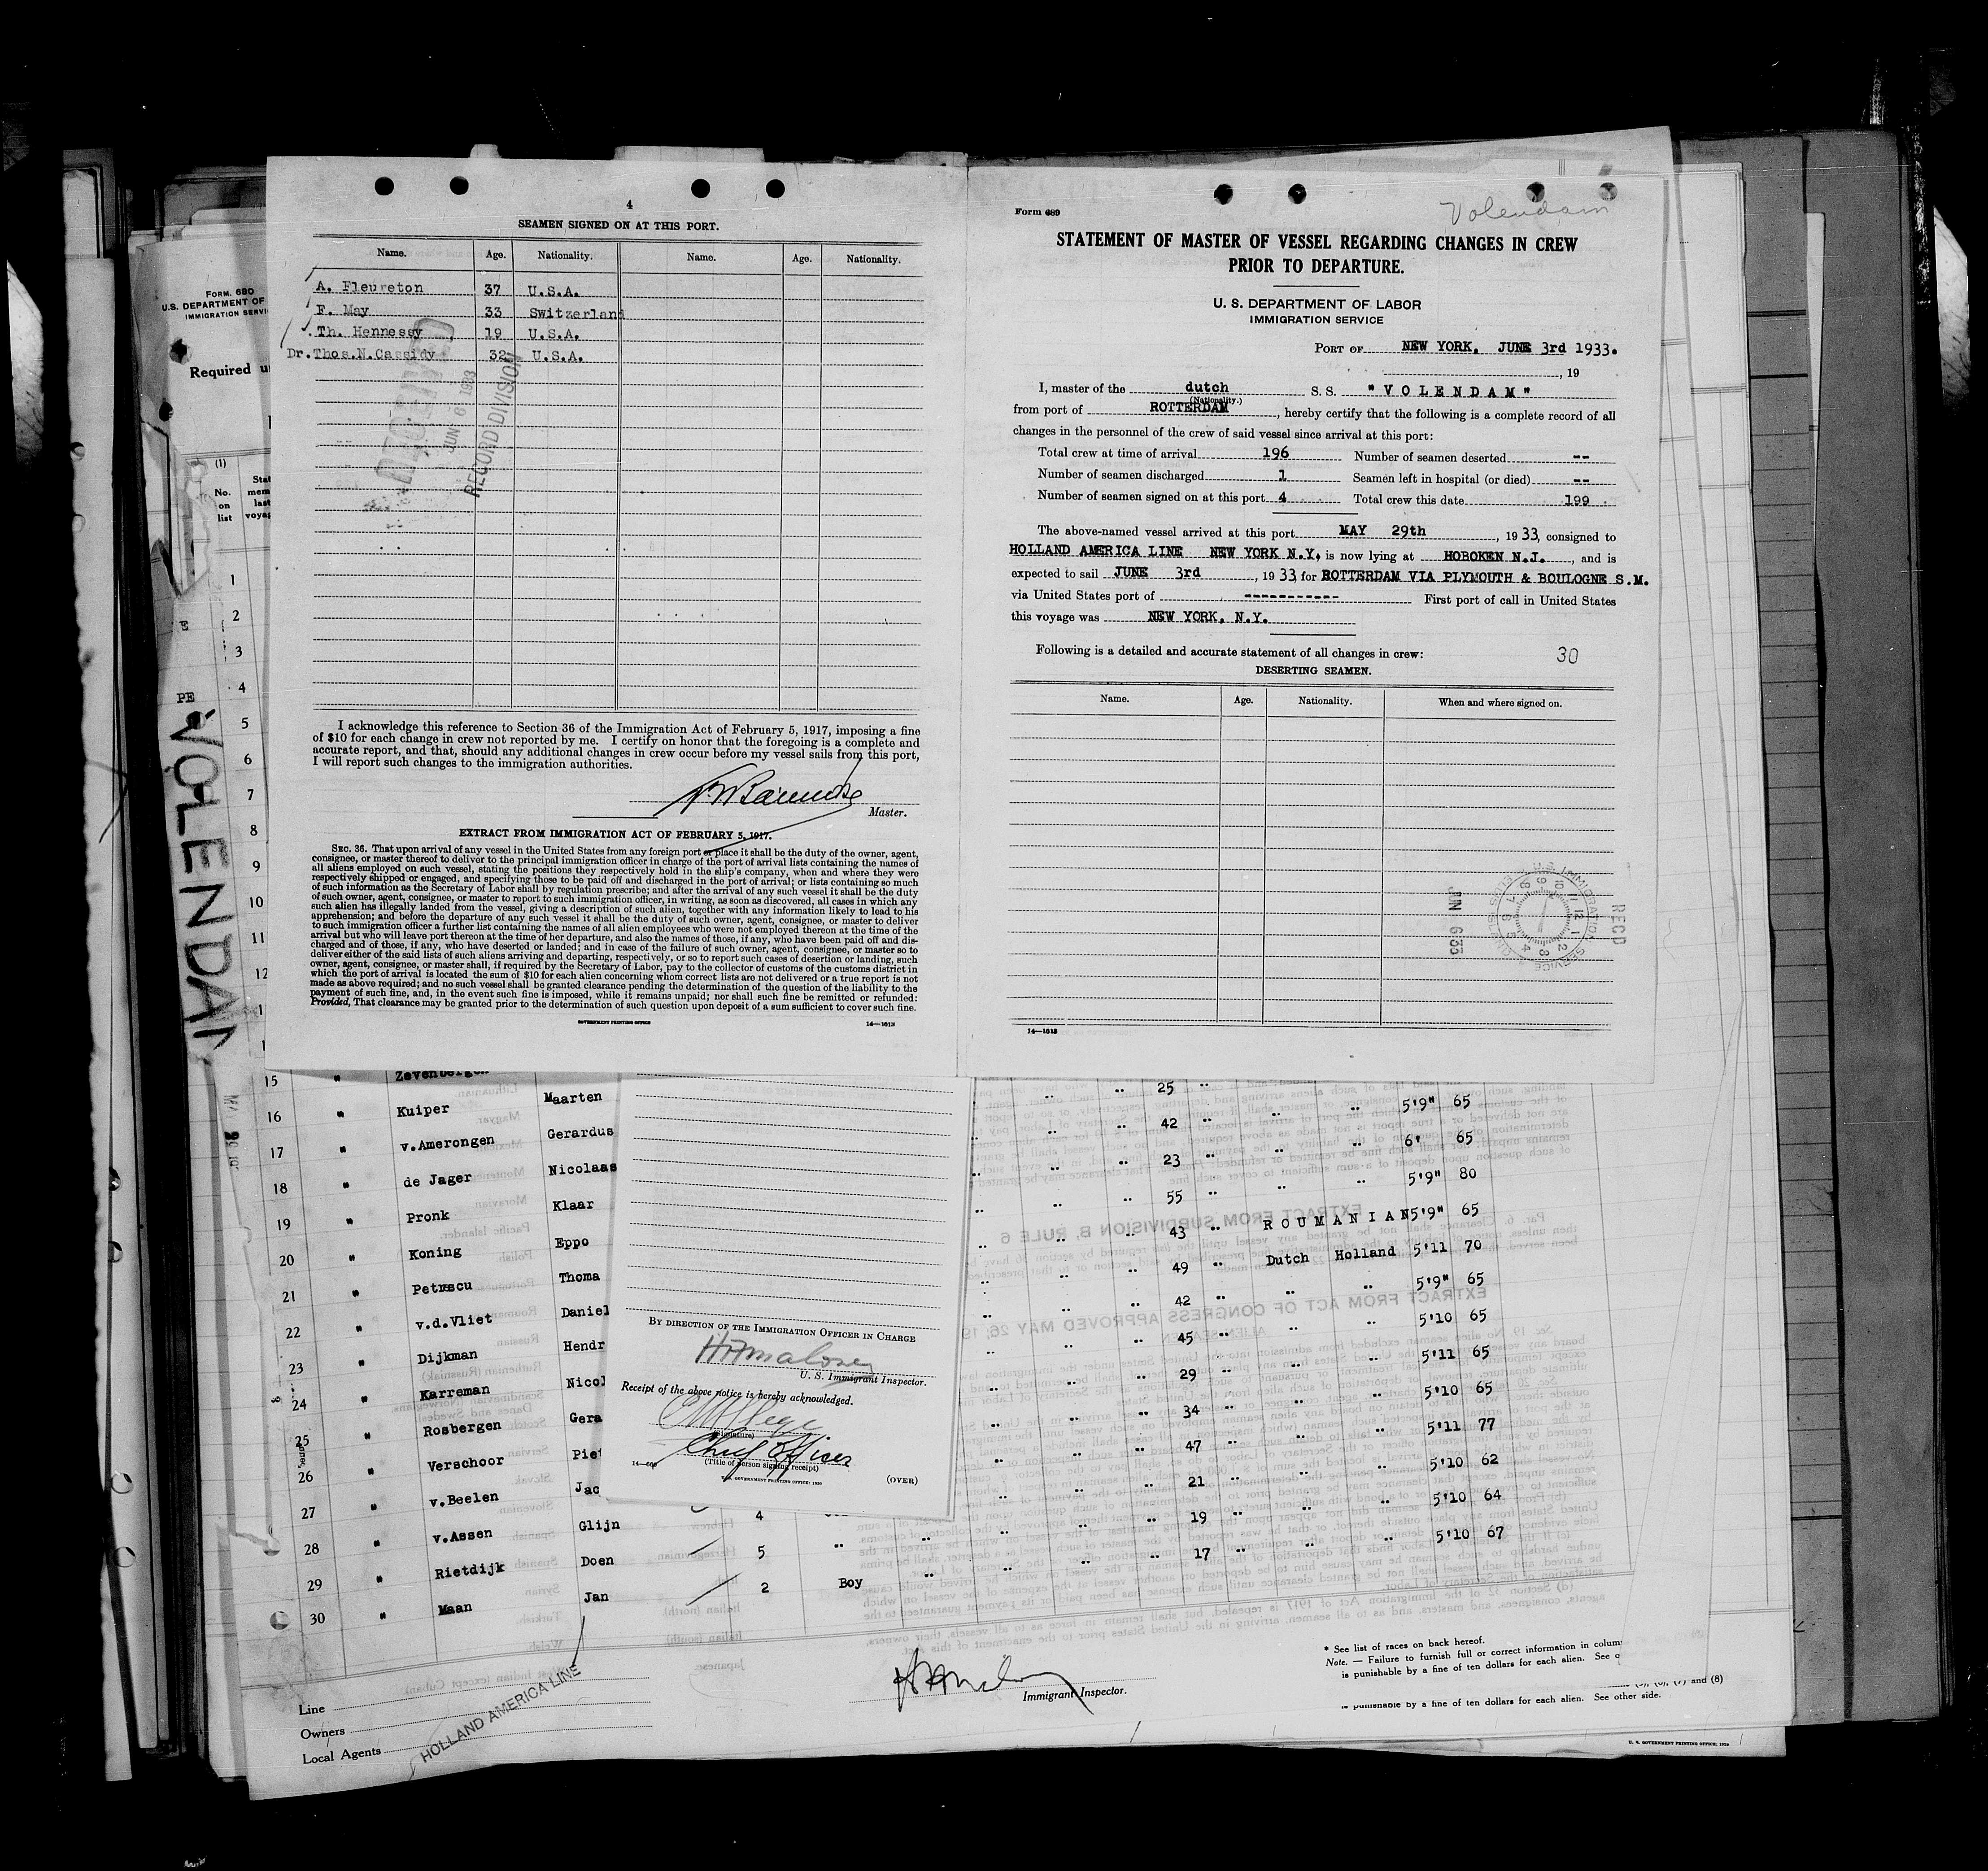 4
SEAMEN SIGNED ON AT THIS PORT.
Name. Age. Nationality. Name. Age. Nationality.
A. Fleureton 37 U.S.A.
F. May 33 Switzerland
Th. Hennessy 19 U.S.A.
Dr. Thos. N. Cassidy 32 U.S.A.
RECEIVED
JUN 6 1933
RECORD DIVISION
I acknowledge this reference to Section 36 of the Immigration Act of February 5, 1917, imposing a fine
of $10 for each change in crew not reported by me. I certify on honor that the foregoing is a complete and
accurate report, and that, should any additional changes in crew occur before my vessel sails from this port,
I will report such changes to the immigration authorities.
Master.
EXTRACT FROM IMMIGRATION ACT OF FEBRUARY 5, 1917.
SEC. 36. That upon arrival of any vessel in the United States from any foreign port or place it shall be the duty of the owner, agent,
consignee, or master thereof to deliver to the principal immigration officer in charge of the port of arrival lists containing the names of
all aliens employed on such vessel, stating the positions they respectively hold in the ship's company, when and where they were
respectively shipped or engaged, and specifying those to be paid off and discharged in the port of arrival; or lists containing so much
of such information as the Secretary of Labor shall by regulation prescribe; and after the arrival of any such vessel it shall be the duty
of such owner, agent, consignee, or master to report to such immigration officer, in writing, as soon as discovered, all cases in which any
such alien has illegally landed from the vessel, giving a description of such alien, together with any information likely to lead to his
apprehension; and before the departure of any such vessel it shall be the duty of such owner, agent, consignee, or master to deliver
to such immigration officer a further list containing the names of all alien employees who were not employed thereon at the time of the
arrival but who will leave port thereon at the time of her departure, and also the names of those, if any, who have been paid off and dis-
charged and of those, if any, who have deserted or landed; and in case of the failure of such owner, agent, consignee, or master so to
deliver either of the said lists of such aliens arriving and departing, respectively, or so to report such cases of desertion or landing, such
owner, agent, consignee, or master shall, if required by the Secretary of Labor, pay to the collector of customs of the customs district in
which the port of arrival is located the sum of $10 for each alien concerning whom correct lists are not delivered or a true report is not
made as above required; and no such vessel shall be granted clearance pending the determination of the question of the liability to the
payment of such fine, and, in the event such fine is imposed, while it remains unpaid; nor shall such fine be remitted or refunded:
Provided, That clearance may be granted prior to the determination of such question upon deposit of a sum sufficient to cover such fine.
GOVERNMENT PRINTING OFFICE 14—1613
Form 689
Volendam
STATEMENT OF MASTER OF VESSEL REGARDING CHANGES IN CREW
PRIOR TO DEPARTURE.
U. S. DEPARTMENT OF LABOR
IMMIGRATION SERVICE
PORT OF NEW YORK, JUNE 3rd 1933.
, 19
I, master of the dutch S. S. "VOLENDAM"
(Nationality.)
from port of ROTTERDAM, hereby certify that the following is a complete record of all
changes in the personnel of the crew of said vessel since arrival at this port:
Total crew at time of arrival 196 Number of seamen deserted --
Number of seamen discharged 1 Seamen left in hospital (or died) --
Number of seamen signed on at this port 4 Total crew this date 199
The above-named vessel arrived at this port MAY 29th, 1933, consigned to
HOLLAND AMERICA LINE NEW YORK N.Y, is now lying at HOBOKEN N.J., and is
expected to sail JUNE 3rd, 1933, for ROTTERDAM VIA PLYMOUTH & BOULOGNE S.M.
via United States port of ----------- First port of call in United States
this voyage was NEW YORK, N.Y.
Following is a detailed and accurate statement of all changes in crew: 30
DESERTING SEAMEN.
Name. Age. Nationality. When and where signed on.
RECD
JUN 6 33
14—1613
FORM. 680
U.S. DEPARTMENT OF
IMMIGRATION SERVI
Required u
(1)
No. on list
Stat
mem
last
voyag
1
2
3
4
5
6
7
8
9
10
11
12
VOLENDAM
15 " Zevenbergen 25 "
16 " Kuiper Maarten 42 " 5'9" 65
17 " v.Amerongen Gerardus 23 " 6' 65
18 " de Jager Nicolaas 55 " 5'9" 80
19 " Pronk Klaar 43 " ROUMANIAN 5'9" 65
20 " Koning Eppo 49 " Dutch Holland 5'11 70
21 " Petrscu Thoma 42 " 5'9" 65
22 " v.d.Vliet Daniel 45 " 5'10 65
23 " Dijkman Hendr 29 " 5'11 65
24 " Karreman Nicol 34 " 5'10 65
25 " Rosbergen Gera 47 " 5'11 77
26 " Verschoor Piet 21 " 5'10 62
27 " v.Beelen Jac 4 19 " 5'10 64
28 " v.Assen Glijn 5 17 " 5'10 67
29 " Rietdijk Doen 2 Boy
30 " Maan Jan
BY DIRECTION OF THE IMMIGRATION OFFICER IN CHARGE
U. S. Immigrant Inspector.
Receipt of the above notice is hereby acknowledged.
(Signature)
Chief Officer
(Title of person signing receipt)
U.S. GOVERNMENT PRINTING OFFICE: 1930
(OVER)
Line
Owners
Local Agents
HOLLAND AMERICA LINE
Immigrant Inspector.
* See list of races on back hereof.
Note. — Failure to furnish full or correct information in colum
is punishable by a fine of ten dollars for each alien. See o
(7) and (8)
is punishable by a fine of ten dollars for each alien. See other side.
U. S. GOVERNMENT PRINTING OFFICE: 1929